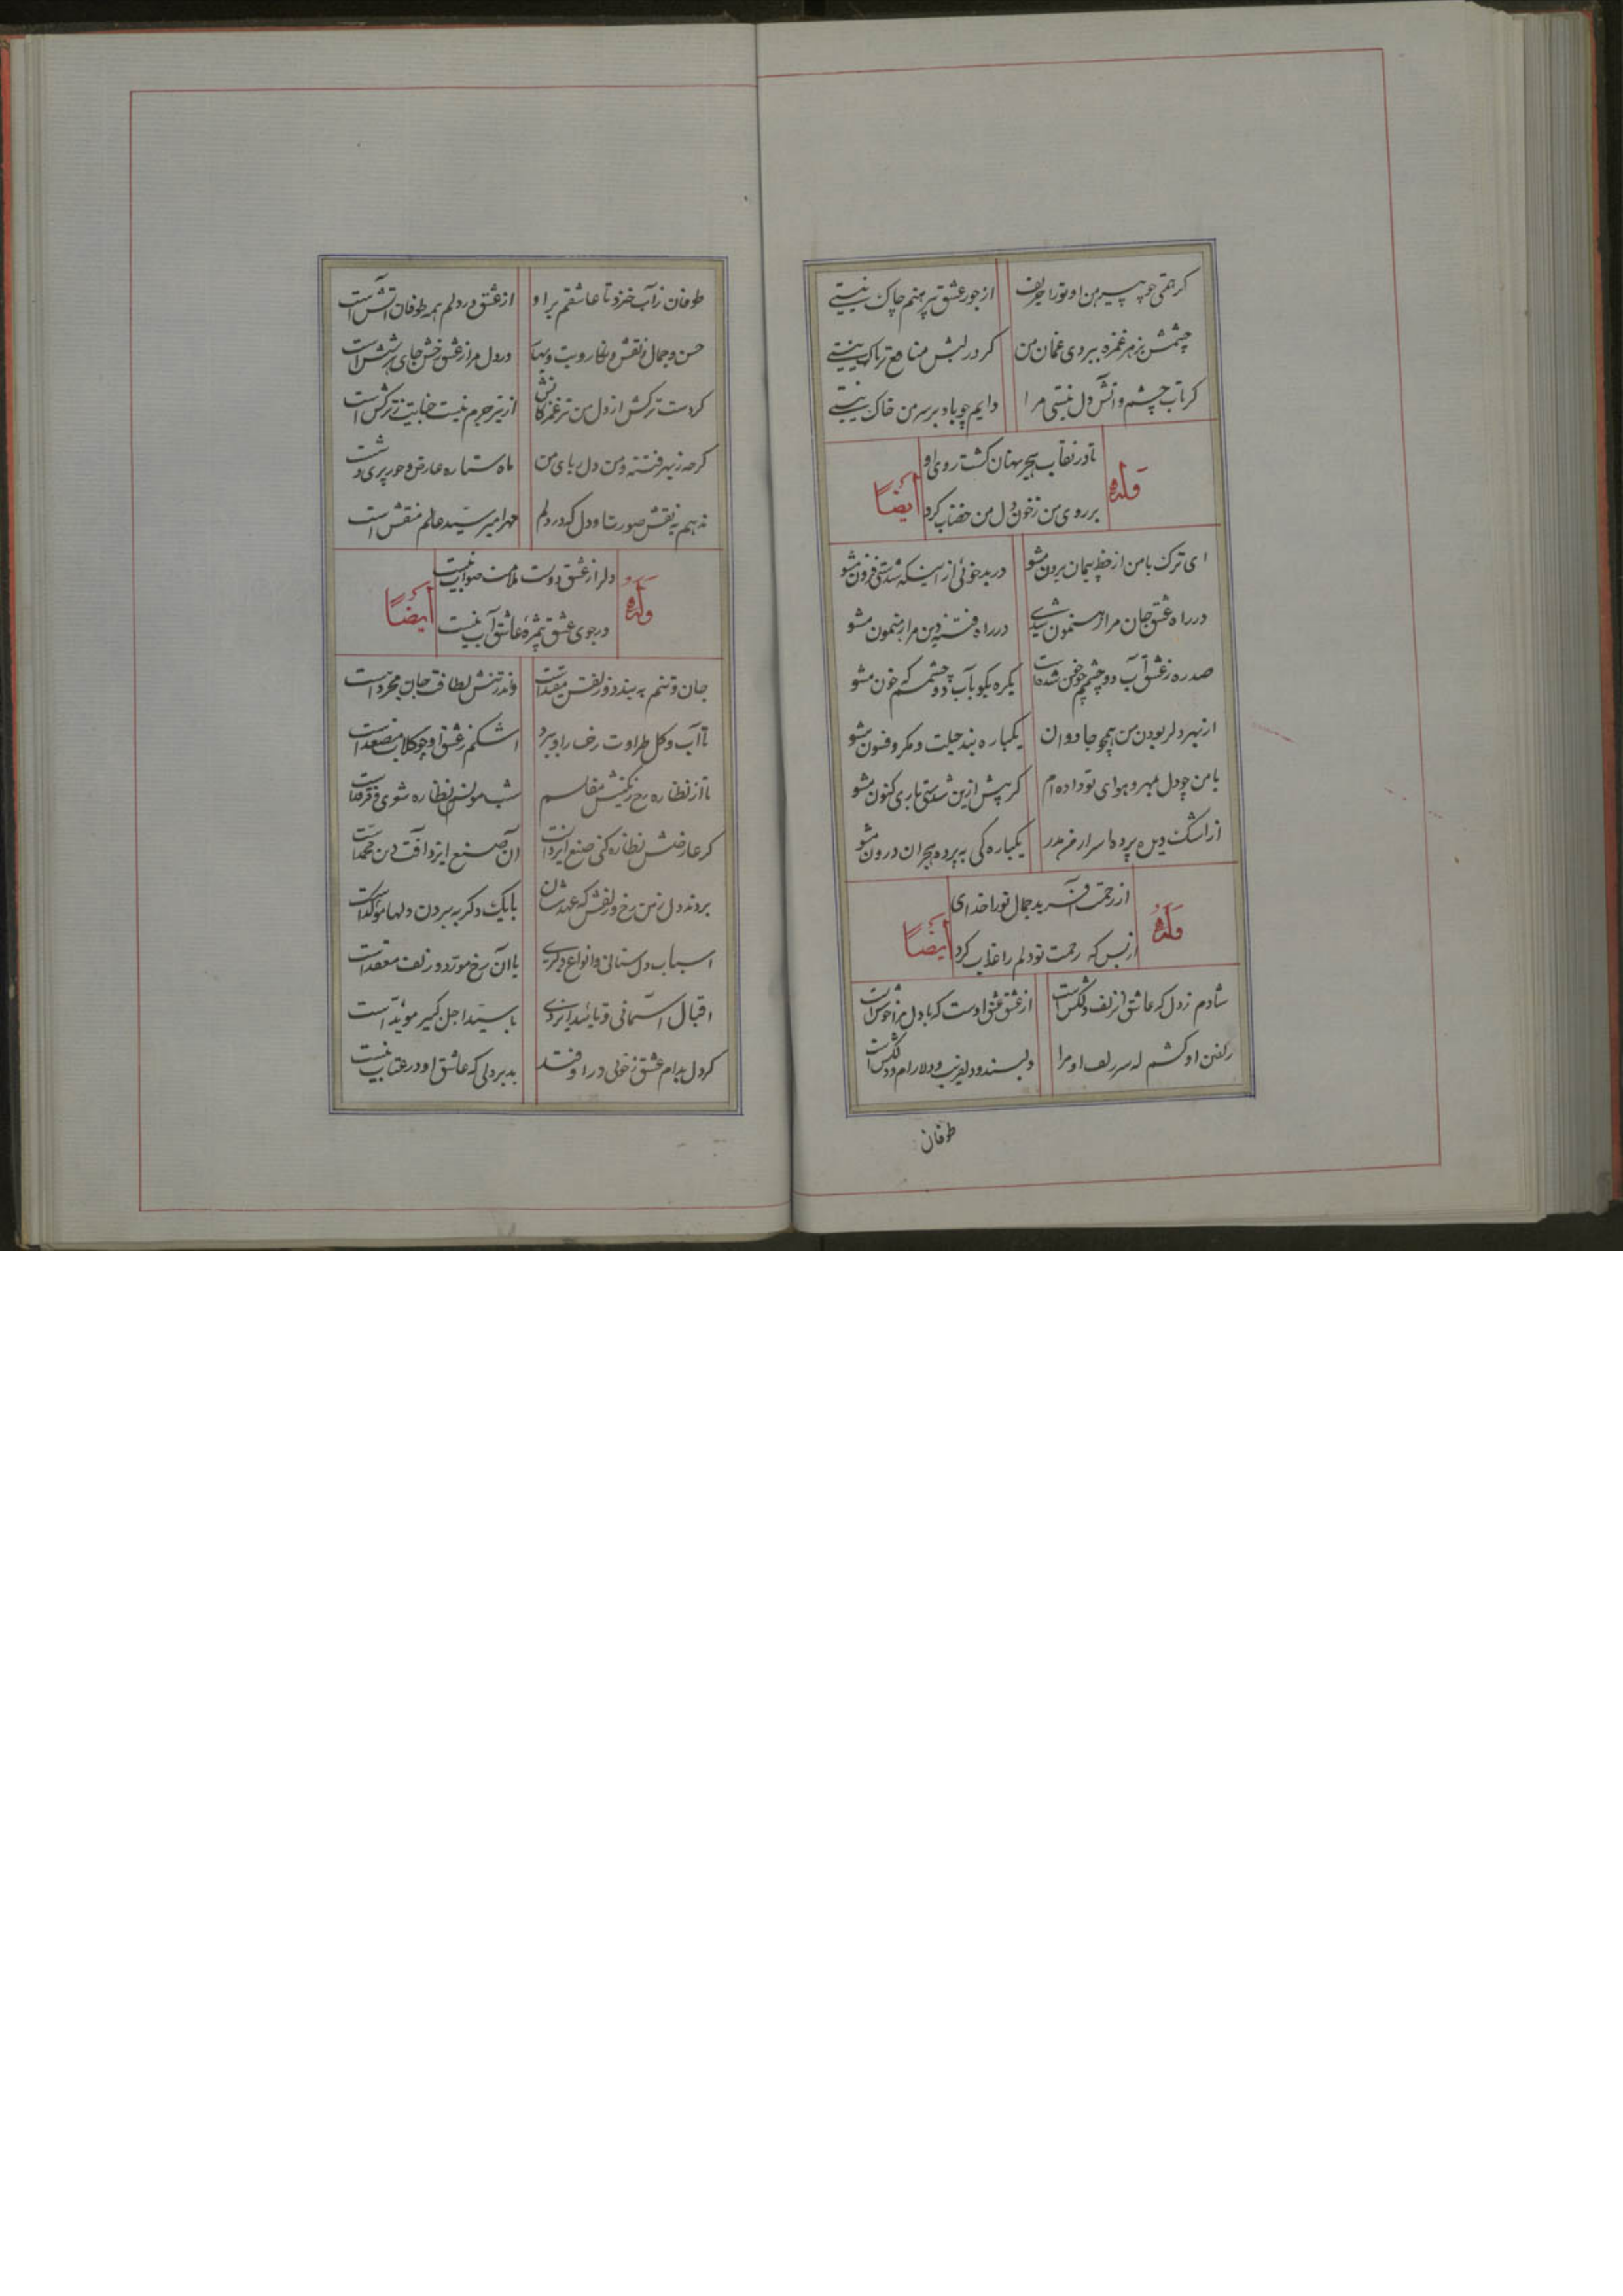 گر همتی چو پیرهن او تو را حریف از جور عشق پیرهنم چاک نیستی
چشمش بزهر غمزه ببردی غمان من گر در لبش منافع تریاک نیستی
گر تاب چشم و آتش دل نیستی مرا دایم چو باد بر سر من خاک نیستی
وله
تا در نقاب هجر نهان گشت روی او
بر روی من ز خون دل من خضاب کرد
ایضاً
ای ترک با من از خط پیمان برون مشو در بدخوئی از اینکه شدستی فزون مشو
در راه عشق جان مرا رهنمون شدی در راه فتنه دین مرا رهنمون مشو
صد ره ز عشق آب دو چشمم چو خون شدست یکره بگو بآب دو چشمم که خون مشو
از بهر دل ربودن من همچو جادوان یکباره بند حیلت و مکر و فسون مشو
با من چو دل بمهر و هوای تو داده‌ام گر پیش ازین شدستی باری کنون مشو
از اشک دیده پرده اسرار من مدر یکباره کی به پرده هجران درون مشو
وله
از رحمت آفرید جمال تو را خدای
از بس که رحمت تو دلم را عذاب کرد
ایضاً
شادم ز دل که عاشق آن زلف دلکش است از عشق عشق اوست که با دل مرا خوش است
زلفین او کشم سر زلف او مرا دلبند و دلفریب و دلارام و دلکش است
طوفان
طوفان ز آب خیزد تا عاشقم بر او از عشق در دلم همه طوفان آتش است
حسن و جمال و نقش و نگار و بت و بها در دل مرا ز عشق خش جای هر شش است
کردست ترکش از دل من تیر غمزگانش از تیر جرم نیست جنایت ز ترکش است
گر چه ز بهر فتنه و من دل ربای من ماه ستاره عارض و حور پری وشست
ندهم به نقش صورت او دل که در دلم مهر امیر سید عالم منقش است
وله
دل را ز عشق دوست ملامت صواب نیست
در جوی عشق بی مژه عاشق آب نیست
ایضاً
جان و تنم به بند دو زلفش مقید است وندر تنش لطافت جان مجرد است
تا آب و گل طراوت رخسار او ببرد اشکم ز عشق او چو گلاب مصعد است
تا از نظاره رخ رنگینش مفلسم شب مونس نظاره شوی فرقد است
گر عارضش نظاره کنی صنع ایزد است آن صنع ایزد آفت دین محمد است
بردند دل ز من رخ و زلفش که عهدشان با یک دگر به بردن دلها مؤکد است
اسباب دل ستانی و انواع دلبری با آن رخ مورد و زلف معقد است
اقبال آسمانی و تائید ایزدی با سید اجل کبیر مؤید است
گر دل بدام عشق ز خوبی در اوفتد بد بر دلی که عاشق او در عتاب نیست